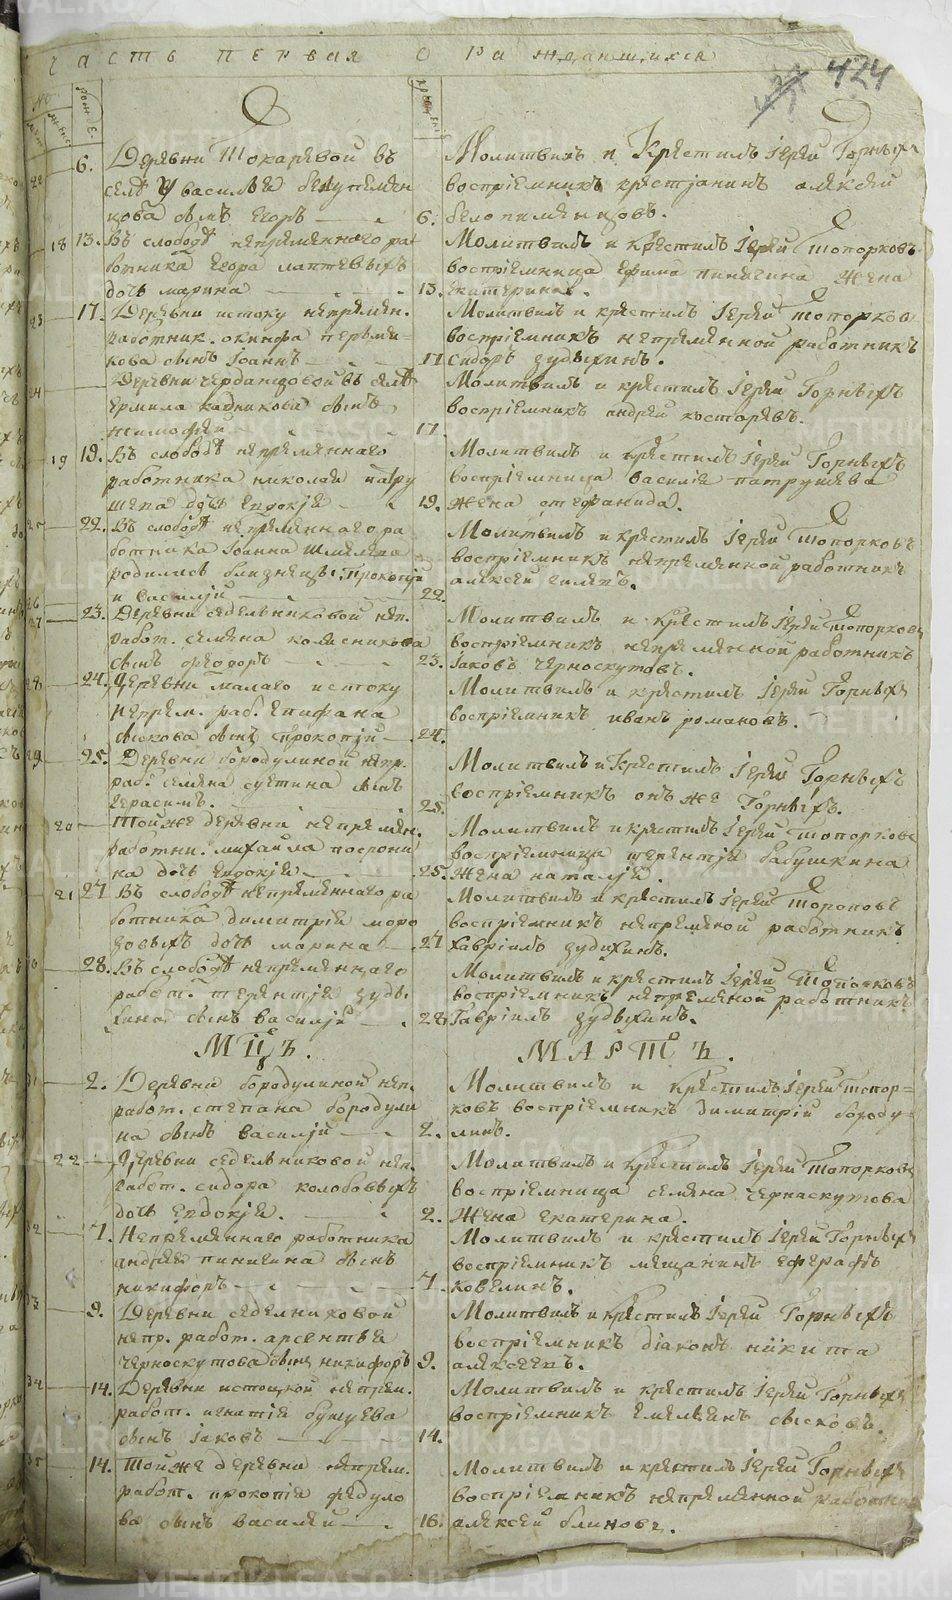 часть первая о раждаюшихся
424
6. Деревни Токаревой въ
селѣ У василья белупемен
цова сынъ Егоръ
Молитвилъ и Крестилъ Іерей Горныхъ
воспріемникъ крестьянинъ алексей
6. белопименцовъ.
18 13. Въ слободѣ непременнаго ра
ботника Егора лаптевыхъ
дочь марина
Молитвилъ и Крестилъ Іерей топорковъ
воспріемница ефима пинягина жена
13. екатерина.
23 17. Деревни истоку непремен.
работник. окинфа перьми
кова сынъ Іоаннъ
Молитвилъ и крестилъ Іерей топорков
воспріемникъ непременной работникъ
17 сидоръ зудихинъ.
24 Деревни черданцовой въ селѣ
Ермила кадникова сынъ
тимофей
Молитвилъ и крестилъ Іерей Горныхъ
воспріемникъ андрей костаревъ.
17.
19 19. Въ слободѣ непременнаго
работника николая патру
шева дочь Евдокіа
Молитвилъ и крестилъ Іерей Горныхъ
воспріемница василіа патрушева
19. жена стефанида.
22. Въ слободѣ непременнаго ра
ботника Іоанна шмелева
родились близнецы, Прокопій
и Василій
Молитвилъ и крестилъ Іерей топорковъ
воспріемникъ непременной работникъ
алексей гилевъ.
22.
26
27 23. Деревни седельниковой неп.
работ. семена колясникова
сынъ феодоръ
Молитвилъ и крестилъ Іерей топорковъ
воспріемникъ непременной работникъ
23. Іаковъ черноскутовъ.
28 24. Деревни малаго истоку
непрем. раб. епифана
сыскова сынъ прокопій
Молитвилъ и крестилъ Іерей Горныхъ
воспріемникъ иванъ романовъ.
24.
29 25. Деревни бородулиной непр.
раб. семена суетина сынъ
Герасимъ.
Молитвилъ и Крестилъ Іерей Горныхъ
воспріемникъ онъ же Горныхъ.
25.
20 той же деревни непремен.
работни. михаила
на дочь Евдокіа
Молитвилъ и крестилъ Іерей топорковъ
воспріемница терентіа бабушкина
25. жена наталіа.
21 27 Въ слободѣ непременнаго ра
ботника димитріа моро
зовыхъ дочь марина
Молитвилъ и крестилъ Іерей
воспріемникъ непременой работникъ
27 Гавріилъ зудихинъ.
28. Въ слободѣ непременнаго
работ. терентіа зуды
хина сынъ василій
Молитвилъ и крестилъ Іерей Топорковъ
воспріемникъ непременой работникъ
28 Гавріилъ зудыхинъ.
МЦЪ. МАРТЪ.
2. Деревни бородулиной неп.
работ. степана бородули
на сынъ василій
Молитвилъ и крестилъ Іерей топор=
ковъ воспріемникъ димитрій бороду
2. линъ.
22 Деревни седельниковой неп.
работ. сидора колобовыхъ
дочь Евдокіа.
Молитвилъ и крестилъ Іерей топорковъ
воспріемница семена чернаскутова
2. жена екатерина.
32 7. Непременнаго работника
андреа пинигина сынъ
никифоръ
Молитвилъ и крестилъ Іерей Горныхъ
воспріемникъ мещанинъ
7. ковелинъ.
33 9. Деревни седелниковой
непр. работ. арсентьа
черноскутова сынъ никифоръ
Молитвилъ и крестилъ Іерей Горныхъ
воспріемникъ діаконъ никита
9. алексеевъ.
34 14. Деревни истоцкой непрем.
работ. игнатіа бушуева
сынъ Іаковъ
Молитвилъ и крестилъ Іерей Горныхъ
воспріемникъ емельянъ сысковъ.
14.
35 14. той же деревни непрем.
работ. прокопіа федуло
ва сынъ василей
Молитвилъ и крестилъ Іерей Горныхъ
воспріемникъ непременной работни
16. алексей блиновъ.
METRIKI.GASO-URAL.RU